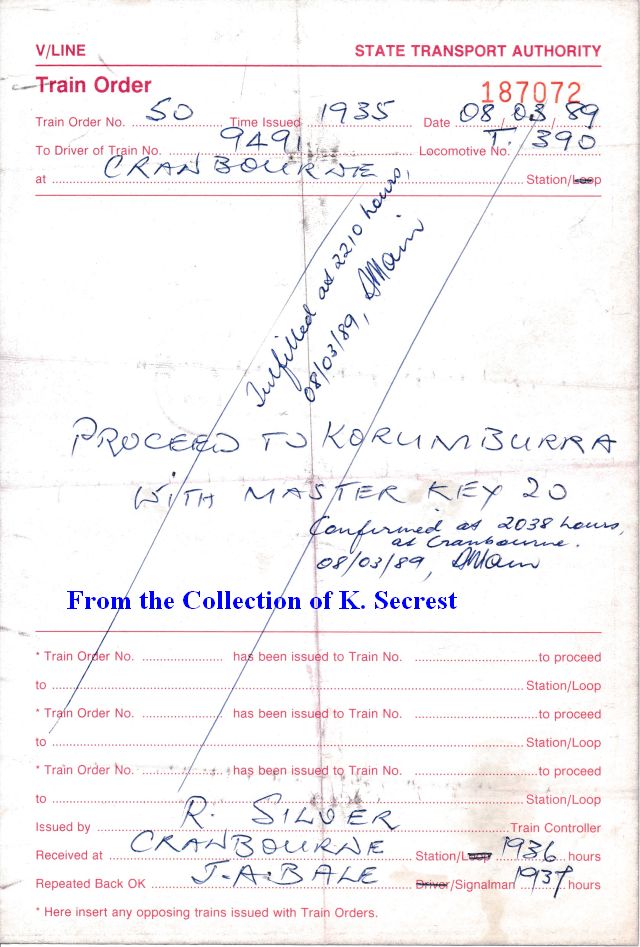 V/LINE STATE TRANSPORT AUTHORITY
Train Order 187072
Train Order No. 50 Time Issued 1935 Date 08/03/89
To Driver of Train No. 9491 Locomotive No. T.390
at CRANBOURNE Station/Loop
Fulfilled at 2210 hours,
08/03/89,
PROCEED TO KORUMBURRA
WITH MASTER KEY 20
Confirmed at 2038 hours,
at Cranbourne.
08/03/89,
From the Collection of K. Secrest
* Train Order No. ........................ has been issued to Train No. ........................ to proceed
to ........................ Station/Loop
* Train Order No. ........................ has been issued to Train No. ........................ to proceed
to ........................ Station/Loop
* Train Order No. ........................ has been issued to Train No. ........................ to proceed
to ........................ Station/Loop
Issued by R. SILVER Train Controller
Received at CRANBOURNE Station/Loop 1936 hours
Repeated Back OK J.A.BALE Driver/Signalman 1937 hours
* Here insert any opposing trains issued with Train Orders.